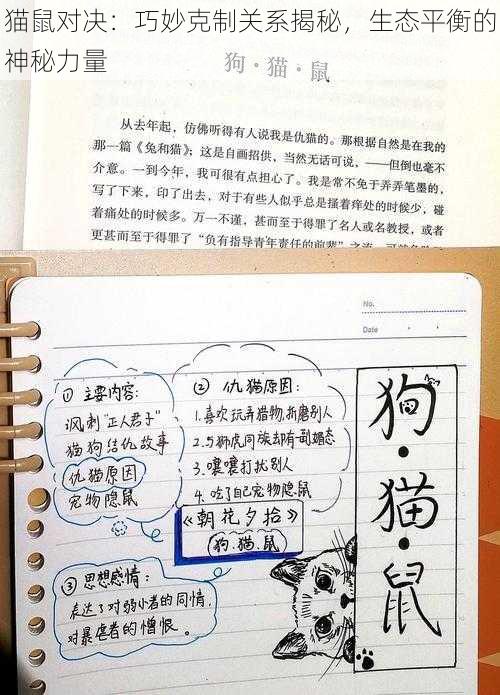 猫鼠对决：巧妙克制关系揭秘，生态平衡的
神秘力量
狗·猫·鼠
从去年起，仿佛听得有人说我是仇猫的。那根据自然是在我的
那一篇《兔和猫》；这是自画招供，当然无话可说，——但倒也毫不
介意。一到今年，我可很有点担心了。我是常不免于弄弄笔墨的，
写了下来，印了出去，对于有些人似乎总是搔着痒处的时候少，碰
着痛处的时候多。万一不谨，甚而至于得罪了名人或名教授，或者
更甚而至于得罪了“负有指导青年责任的前辈”之流
No.
Date
① 主要内容：
讽刺“正人君子”
猫狗结仇故事
仇猫原因
宠物隐鼠
② 仇猫原因：
1.喜欢玩弄猎物,折磨别人
2.与狮虎同族却有一副媚态
3.嚷嚷打扰别人
4.吃了自己宠物隐鼠
《朝花夕拾》
狗.猫.鼠
③ 思想感情：
表达了对弱小者的同情,
对暴虐者的憎恨。
狗·猫·鼠